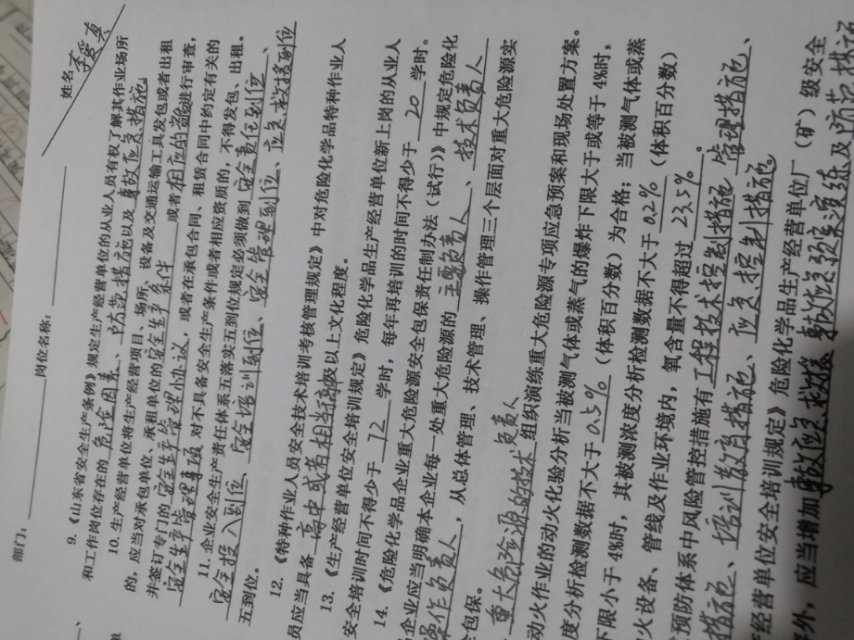 部门： 岗位名称： 姓名 李爱英
9.《山东省安全生产条例》规定生产经营单位的从业人员有权了解其作业场所
和工作岗位存在的 危险因素 、 防范措施 以及 事故应急措施
10. 生产经营单位将生产经营项目、场所、设备及交通运输工具发包或者出租
的，应当对承包单位、承租单位的 安全生产条件 或者 相应的资质 进行审查，
并签订专门的 安全生产管理协议 ，或者在承包合同、租赁合同中约定有关的
安全生产管理事项 对不具备安全生产条件或者相应资质的，不得发包、出租。
11. 企业安全生产责任体系五落实五到位规定必须做到 安全责任到位 、
安全投入到位 、 安全培训到位 、 安全管理到位 、 应急救援到位
五到位。
12. 《特种作业人员安全技术培训考核管理规定》中对危险化学品特种作业人
员应当具备 高中或者相当高中 及以上文化程度。
13. 《生产经营单位安全培训规定》危险化学品生产经营单位新上岗的从业人
安全培训时间不得少于 72 学时，每年再培训的时间不得少于 20 学时。
14. 《危险化学品企业重大危险源安全包保责任制办法（试行）》中规定危险化
企业应当明确本企业每一处重大危险源的 主要负责人 、 技术负责人
操作负责人 ，从总体管理、技术管理、操作管理三个层面对重大危险源实
包保。
重大危险源的技术负责人 组织演练重大危险源专项应急预案和现场处置方案。
动火作业的动火化验分析当被测气体或蒸气的爆炸下限大于或等于 4%时，
度分析检测数据不大于 0.5% （体积百分数）为合格；当被测气体或蒸
下限小于 4%时，其被测浓度分析检测数据不大于 0.2% （体积百分数）
火设备、管线及作业环境内，氧含量不得超过 23.5% 。
预防体系中风险管控措施有 工程技术控制措施 管理措施 、
措施 、 培训教育措施 、 应急控制措施
经营单位安全培训规定》危险化学品生产经营单位厂（矿）级安全
外，应当增加 事故应急救援 事故应急预案演练及防范措施